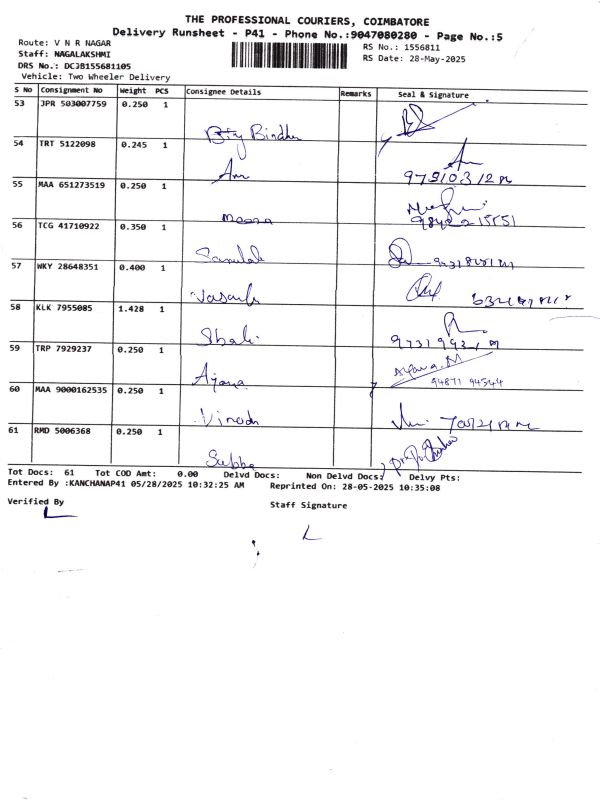 THE PROFESSIONAL COURIERS, COIMBATORE
Delivery Runsheet - P41 - Phone No.:9047080280 - Page No.:5
Route: V N R NAGAR
RS No.: 1556811
Staff: NAGALAKSHMI
RS Date: 28-May-2025
DRS No.: DCJB155681105
Vehicle: Two Wheeler Delivery
S No Consignment No Weight PCS Consignee Details Remarks Seal & Signature
53 JPR 503007759 0.250 1
Bindhu
54 TRT 5122098 0.245 1
55 MAA 651273519 0.250 1
Meena
56 TCG 41710922 0.350 1
57 WKY 28648351 0.400 1
58 KLK 7955085 1.428 1
59 TRP 7929237 0.250 1
Arjana
94871 94544
60 MAA 9000162535 0.250 1
Vinoth
61 RMD 5006368 0.250 1
Subba
Tot Docs: 61 Tot COD Amt: 0.00 Delvd Docs: Non Delvd Docs: Delvy Pts:
Entered By :KANCHANAP41 05/28/2025 10:32:25 AM Reprinted On: 28-05-2025 10:35:08
Verified By
Staff Signature